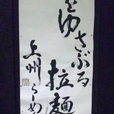 をゆさぶる
拉麺
上州らーめ